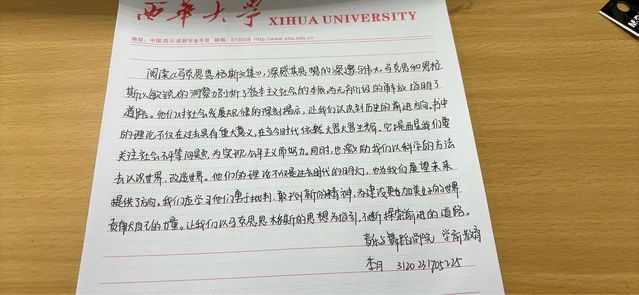 西华大学 XIHUA UNIVERSITY
地址：中国.四川.成都市金牛区 邮编：610039 Http://www.xhu.edu.cn
阅读《马克思恩格斯文集》，深感其思想的深邃与伟大。马克思和恩格
斯以敏锐的洞察剖析了资本主义社会的本质，为无产阶级的解放指明了
道路。他们对社会发展规律的深刻揭示，让我们认识到历史的前进方向。书中
的理论不仅在过去具有重大意义，在当今时代依然熠熠生辉。它提醒我们要
关注社会不平等问题，为实现公平正义而努力。同时，也激励我们以科学的方法
去认识世界、改造世界。他们的理论不仅是过去时代的明灯，也为我们展望未来
提供了方向。我们应学习他们勇于批判、敢于创新的精神，为建设更加美好的世界
贡献自己的力量。让我们以马克思恩格斯的思想为指引，不断探索前进的道路。
音乐与舞蹈学院 学前教育
李月 3120231705225